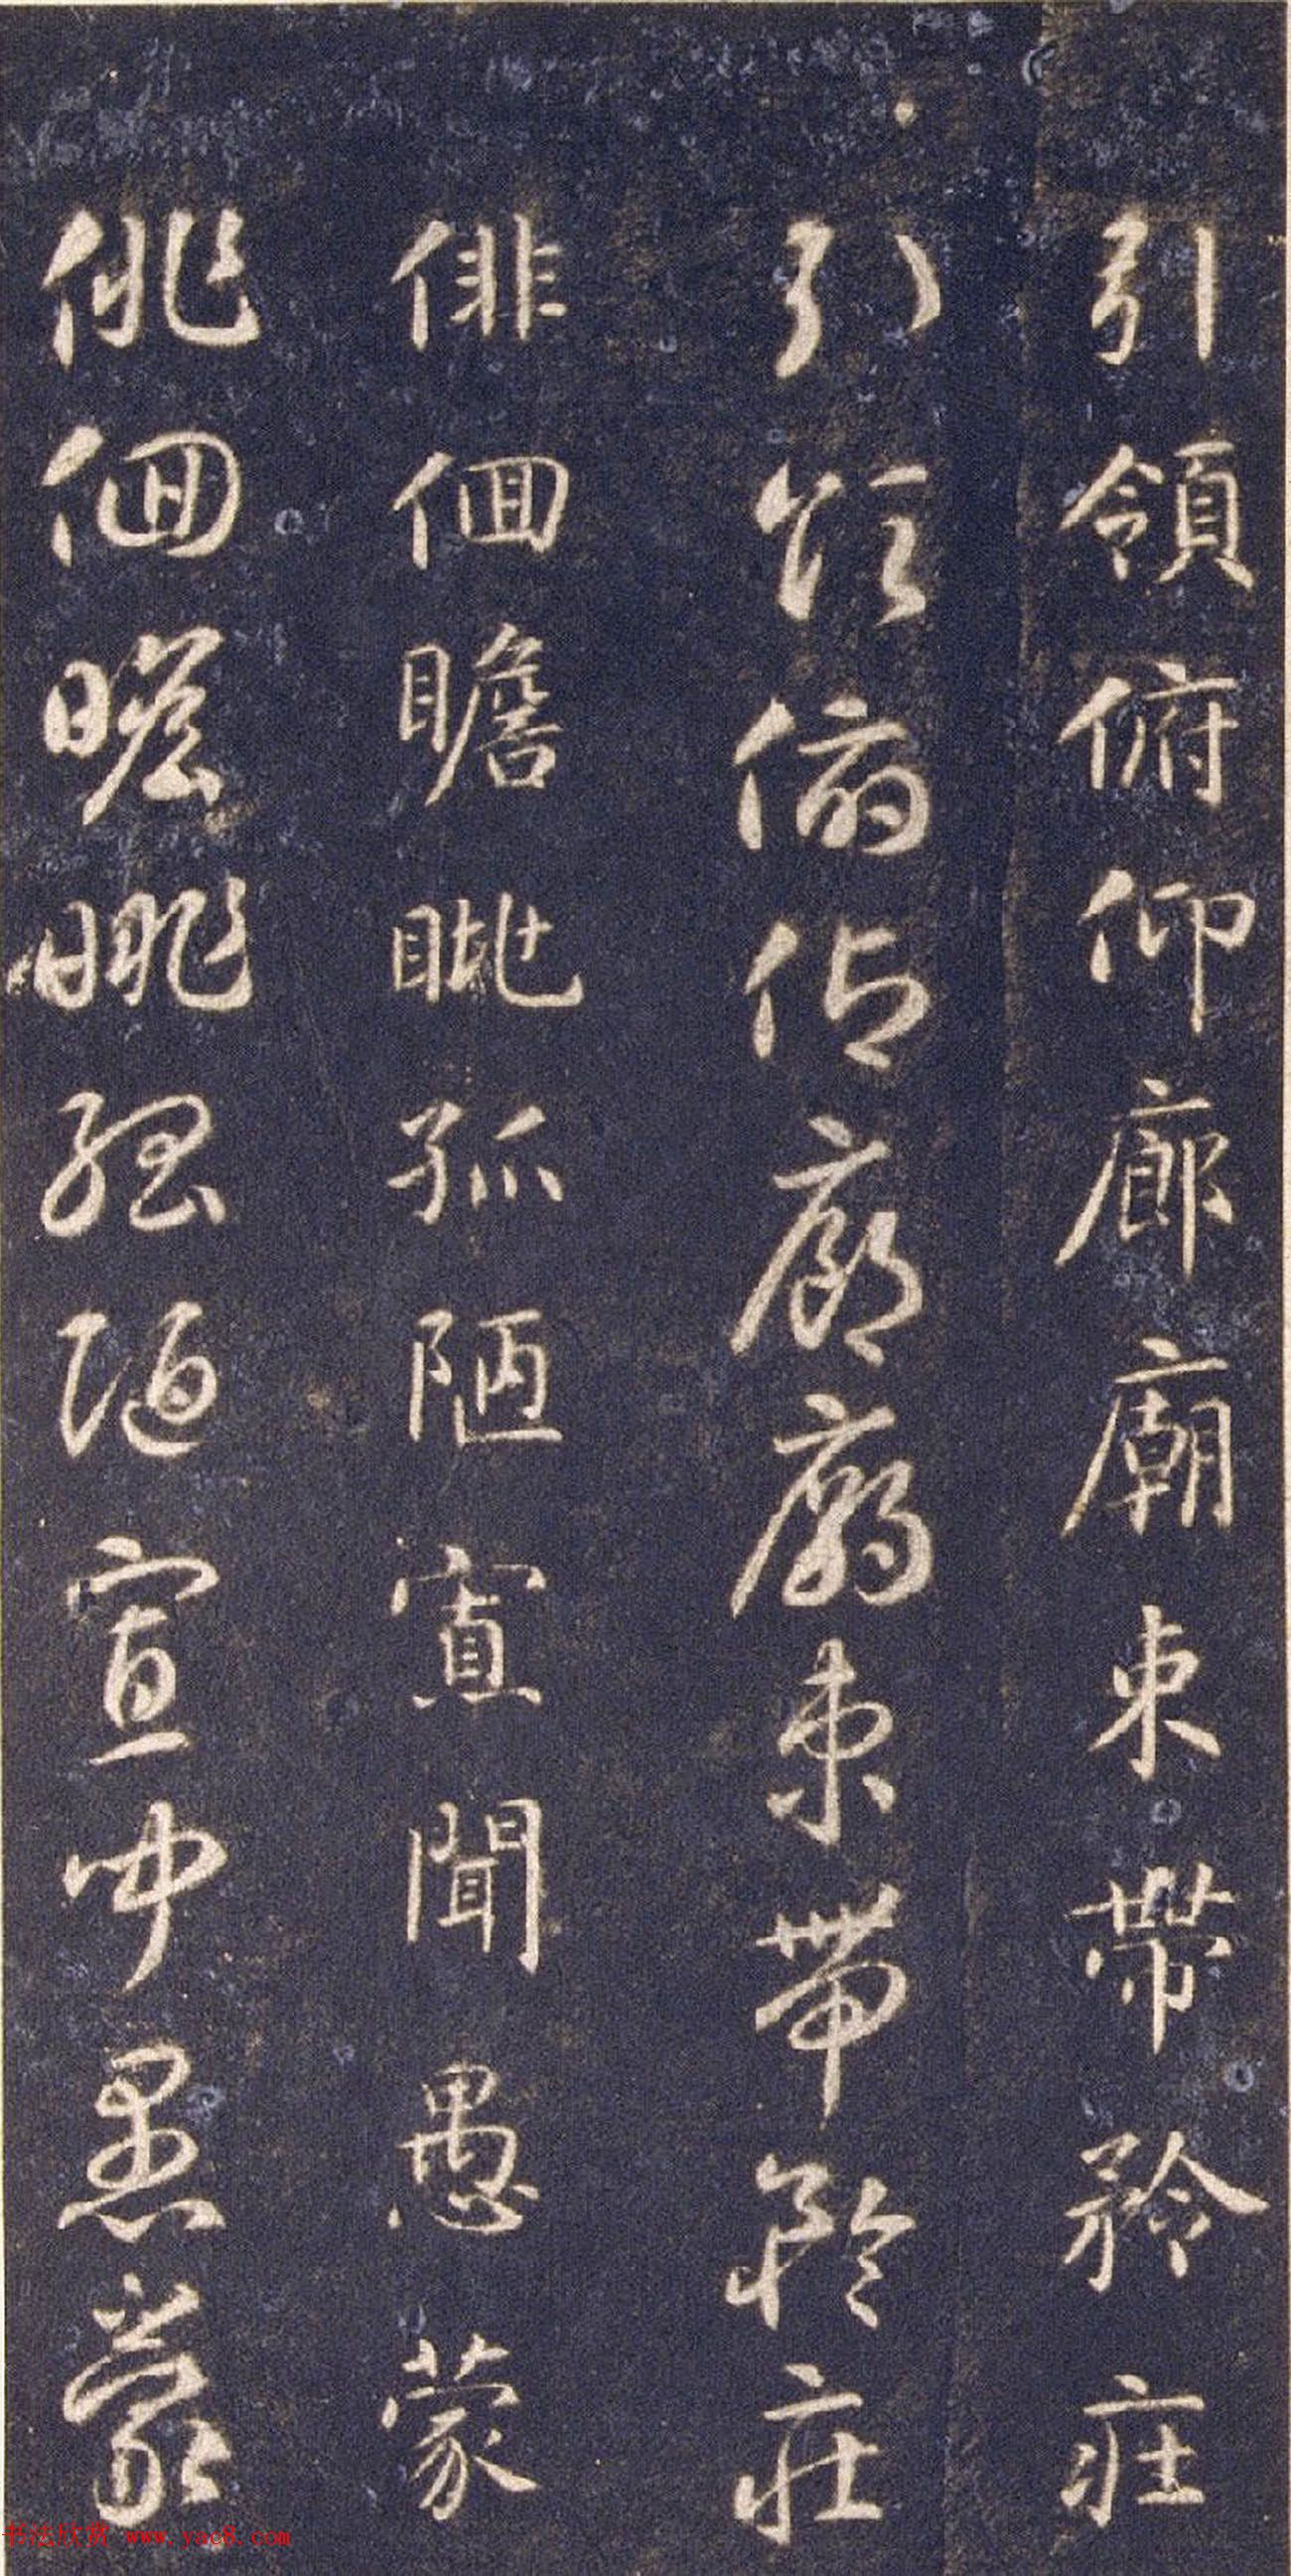 引領俯仰廊廟束帶矜莊
引領俯仰廊廟束帶矜莊
徘徊瞻眺孤陋寡聞愚蒙
徘徊瞻眺孤陋寡聞愚蒙
书法欣赏 www.yac8.com